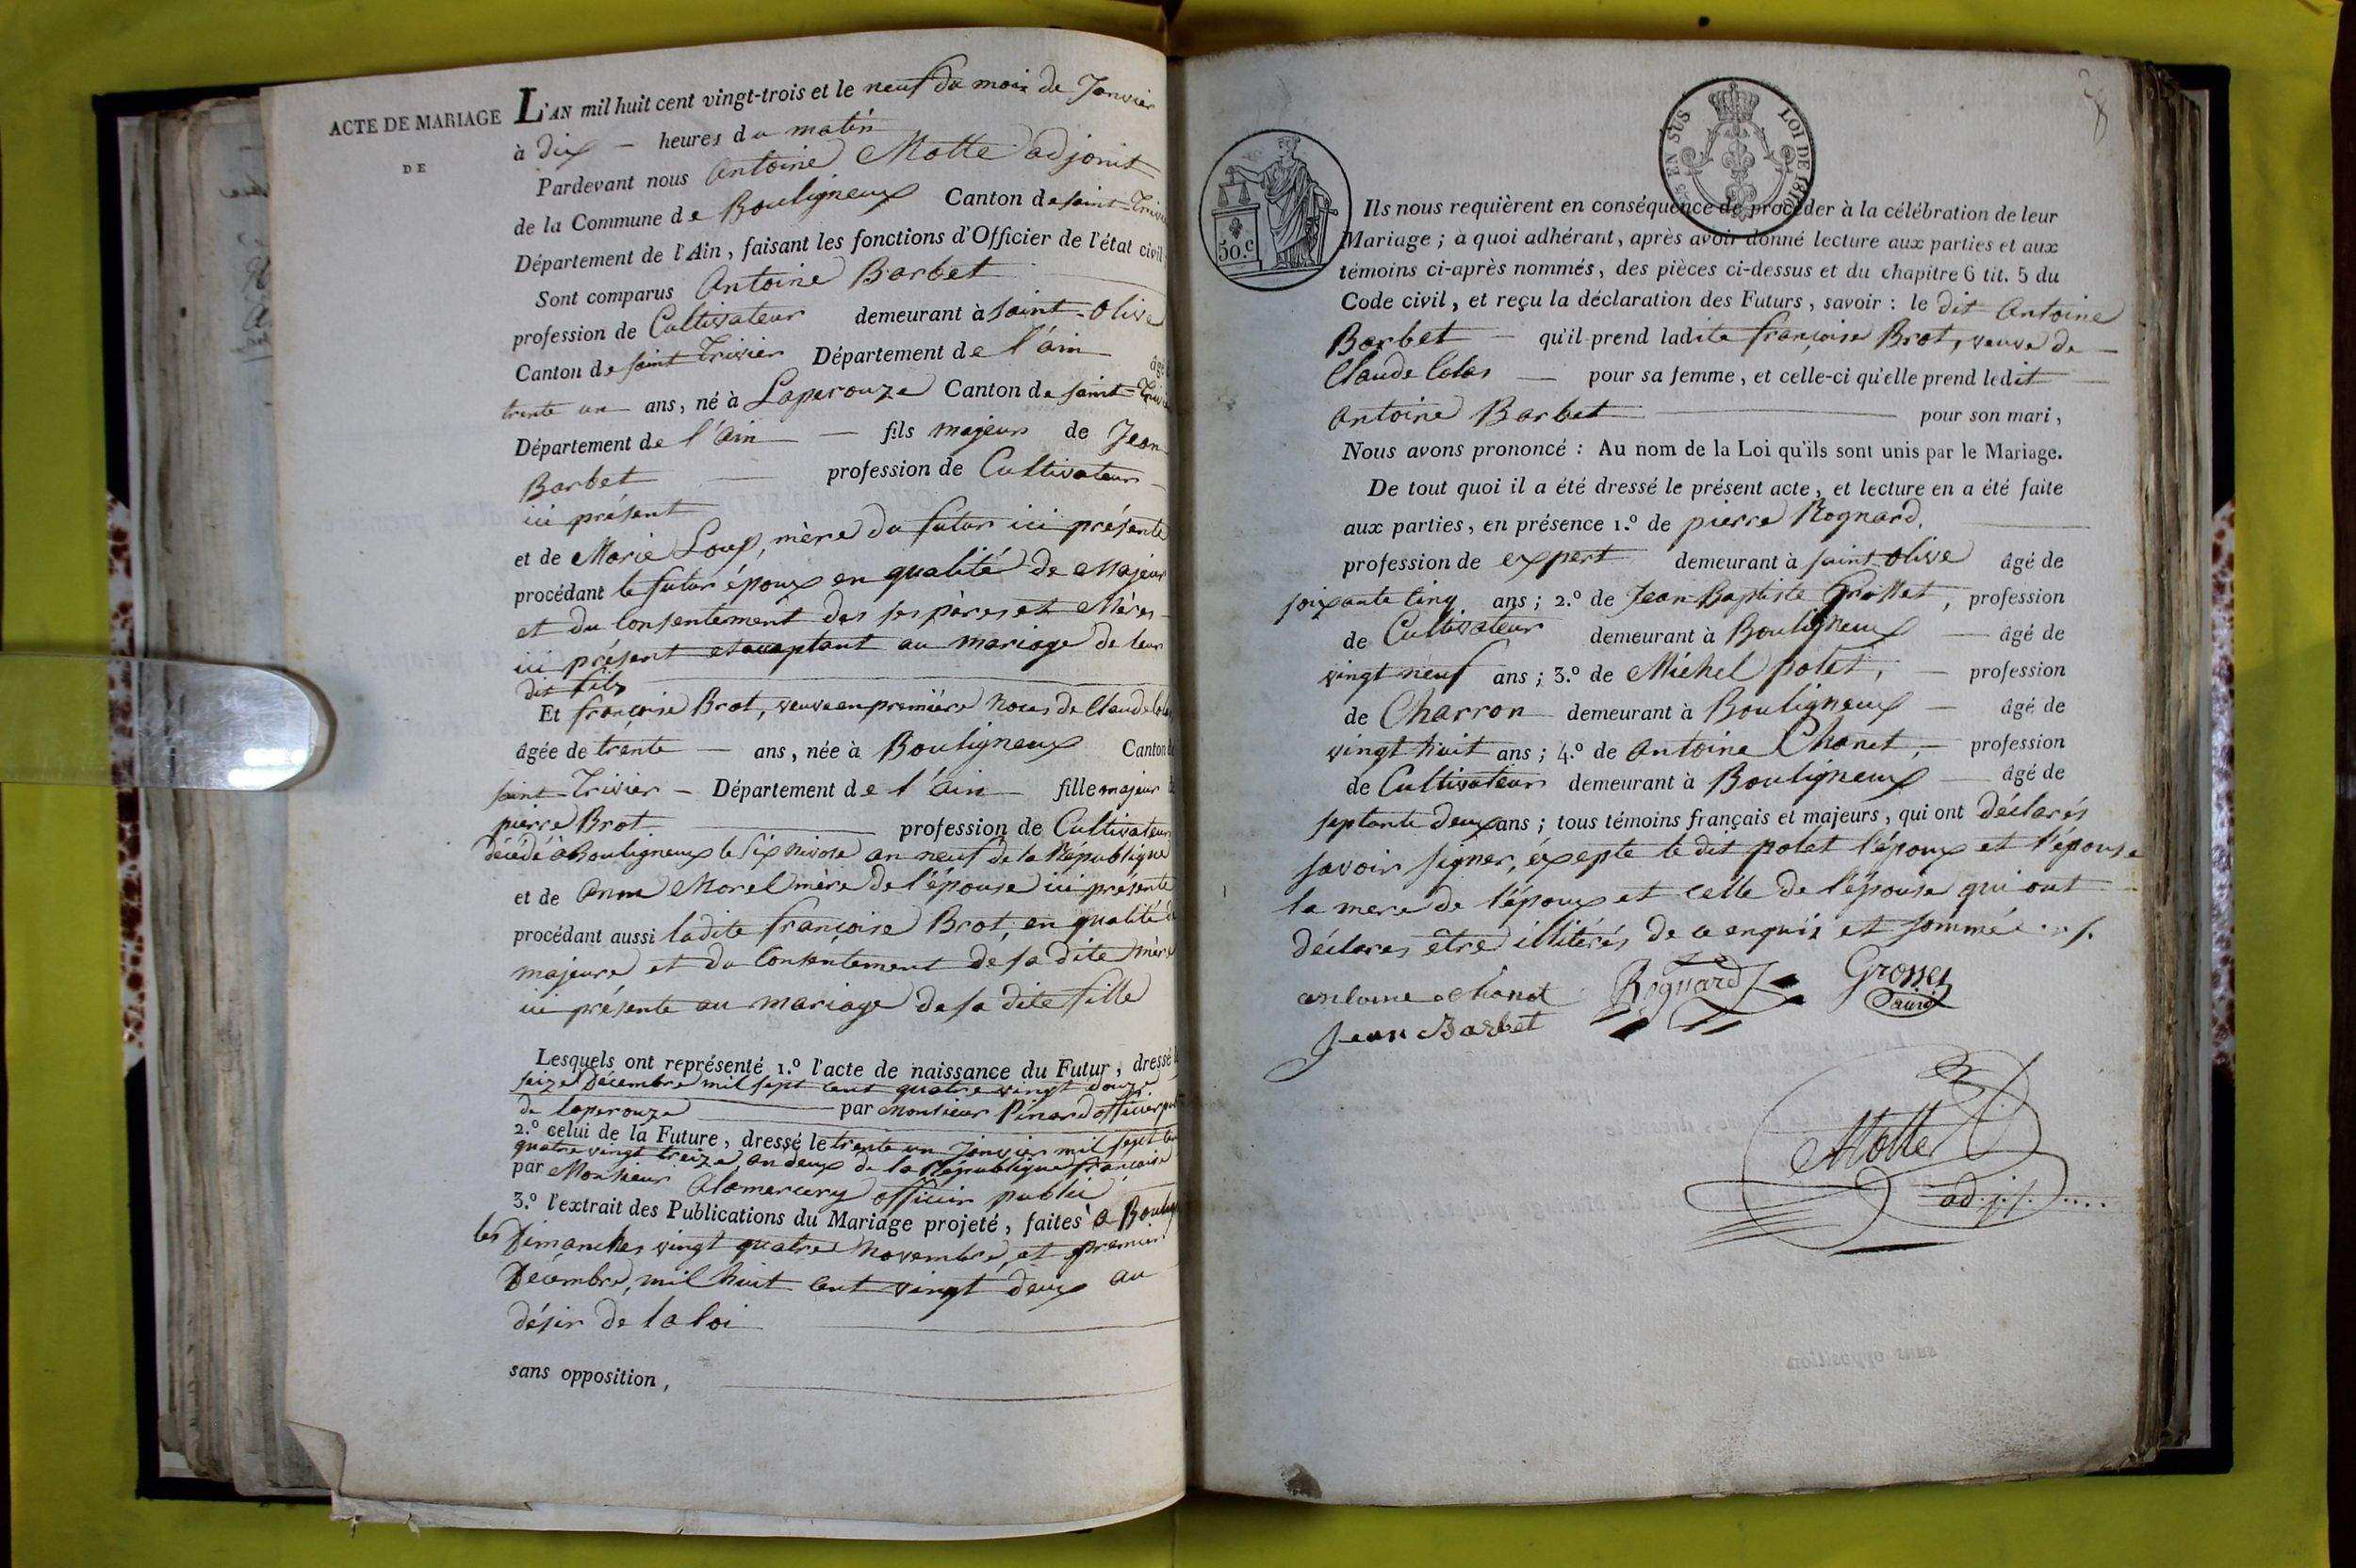 ACTE DE MARIAGE
DE
L'AN mil huit cent vingt-trois et le neuf du mois de Janvier
à dix – heures du matin
Pardevant nous Antoine Motte adjonit
de la Commune de Bouligneux Canton de saint-Trivier
Département de l'Ain, faisant les fonctions d'Officier de l'état civil
Sont comparus Antoine Barbet
profession de Cultivateur demeurant à saint-Olive
Canton de saint Trivier Département de l'ain âgé
trente un ans, né à Laperouze Canton de saint-Trivier
Département de l'Ain — fils majeur de Jean
Barbet — profession de Cultivateur
ici présent
et de Marie Loup, mère du futur ici présente
procédant le futur époux en qualité de Majeur
et du Consentement des ses pères et Mères
ici présent et acceptant au mariage de leur
dit fils
Et françoise Brot, veuve en première Noces de Claude Colas
âgée de trente — ans, née à Bouligneux Canton de
saint-Trivier – Département de l'Ain fille majeur de
pierre Brot profession de Cultivateur
décédé à Bouligneux le six nivose an neuf de la République
et de Anne Morel mère de l'épouse ici présente
procédant aussi ladite françoise Brot, en qualité de
majeure et du Consentement de sa dite mère
ici présente au mariage de sa dite fille
Lesquels ont représenté 1.º l'acte de naissance du Futur, dressé le
seize Décembre mil sept cent quatre vingt douze
de laperouze par Monsieur Pinard officier pub
2.º celui de la Future, dressé le trente un Janvier mil sept cent
quatre vingt treize, an deux de la République françoise
par Monsieur Alamercery officier public
3.º l'extrait des Publications du Mariage projeté, faites à Boulig
les Dimanches vingt quatre Novembre, et premier
Décembre, mil huit cent vingt deux au
désir de la loi
sans opposition,
EN SUS
LOI DE 1816
50.c
Ils nous requièrent en conséquence de procéder à la célébration de leur
Mariage ; à quoi adhérant, après avoir donné lecture aux parties et aux
témoins ci-après nommés, des pièces ci-dessus et du chapitre 6 tit. 5 du
Code civil, et reçu la déclaration des Futurs, savoir : le dit Antoine
Barbet — qu'il prend ladite françoise Brot, veuve de —
Claude Colas — pour sa femme, et celle-ci qu'elle prend ledit
Antoine Barbet pour son mari,
Nous avons prononcé : Au nom de la Loi qu'ils sont unis par le Mariage.
De tout quoi il a été dressé le présent acte, et lecture en a été faite
aux parties, en présence 1.º de pierre Rognard,
profession de expert demeurant à saint-olive âgé de
soixante cinq ans ; 2.º de Jean-Baptiste Grosset, profession
de Cultivateur demeurant à Bouligneux — âgé de
vingt neuf ans ; 3.º de Michel polet, — profession
de Charron demeurant à Bouligneux — âgé de
vingt huit ans ; 4.º de Antoine Chanet, – profession
de Cultivateur demeurant à Bouligneux — âgé de
septante deux ans ; tous témoins français et majeurs, qui ont déclarés
savoir signer, éxepte le dit polet l'époux et l'épouse
la mere de l'époux et celle de l'épouse qui ont
déclares être illitérés de ce enquis et sommés
antoine chanet Rognard Grosset
Jean Barbet
Motte
adj.